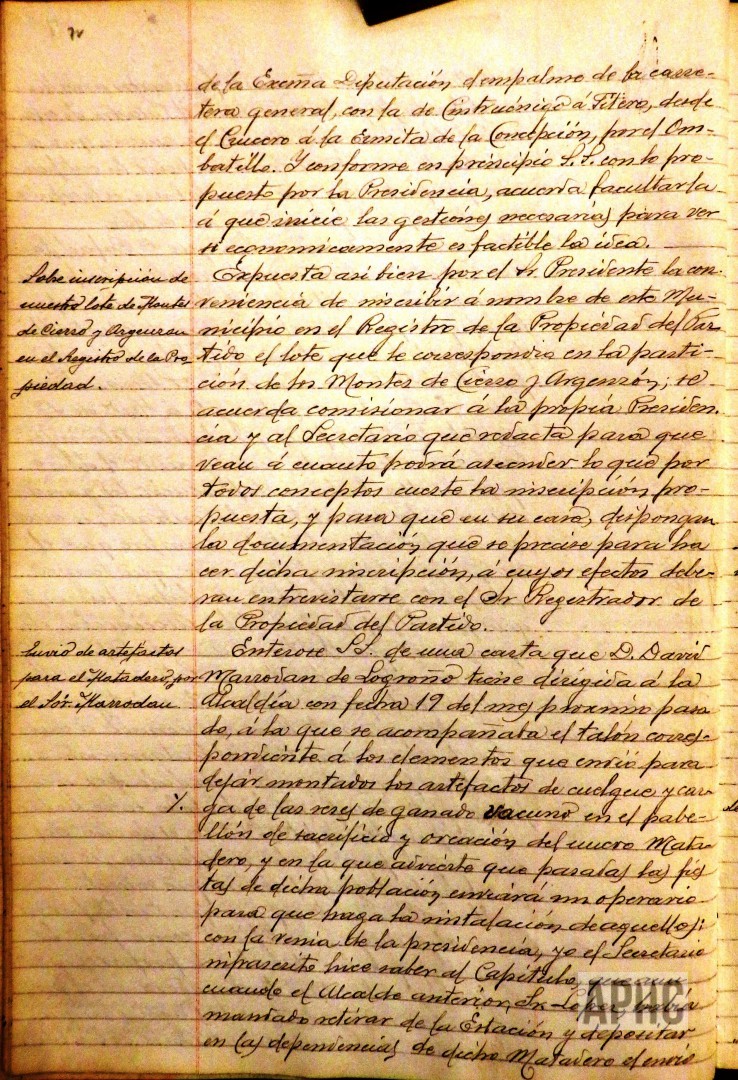 de la Excma Diputación d'empalme de la carre-
tera general, con la de Cintruénigo á Fitero, desde
el Crucero á la Ermita de la Concepción, por el Om-
batillo. Y conforme en principio S.S. con lo pro-
puesto por la Presidencia, acuerda facultarla
á que inicie las gestiones necesarias para ver
si economicamente es factible la idea.
Sobre inscripción de
nuestro lote de Montes
de Cierzo y Argenzon
en el Registro de la Pro
piedad.
Expuesta asi bien por el Sr. Presidente la con-
veniencia de inscribir á nombre de este Mu-
nicipio en el Registro de la Propiedad del Par
tido el lote que le correspondio en la parti-
ción de los Montes de Cierzo y Argenzón; se
acuerda comisionar á la propia Presiden-
cia y al Secretario que redacta para que
vean á cuanto podrá ascender lo que por
todos conceptos cueste la inscripción pro-
puesta, y para que en su caso, dispongan
la documentación que se precise para ha
cer dicha inscripción, á cuyos efectos debe-
ran entrevistarse con el Sr Registrador de
la Propiedad del Partido.
Envio de artefactos
para el Matadero, por
el Sór. Marrodan
Enterose S.S. de una carta que D. David
Marrodan de Logroño tiene dirigida á la
Alcaldía con fecha 19 del mes proximo pasa
do, á la que se acompañaba el talón corres-
pondiente á los elementos que envió para
dejar montados los artefactos de cuelgue y car-
ga de las reses de ganado vacuno en el pabe-
llón de sacrificio y oreación del nuevo Mata-
dero, y en la que advierte que pasadas las fies
tas de dicha población enviará un operario
para que haga la instalación de aquellos;
con la venia de la presidencia, yo el Secretario
infrascrito hice saber al Capítulo,
cuando el Alcalde anterior, Sr.
mandado retirar de la Estación y depositar
en las dependencias de dicho Matadero el envio
APHC